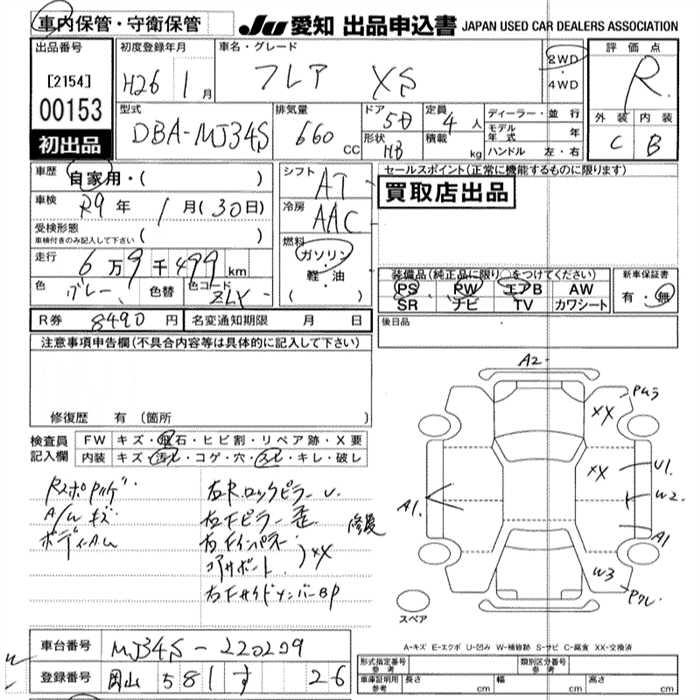 車内保管・守衛保管 JU 愛知 出品申込書 JAPAN USED CAR DEALERS ASSOCIATION
出品番号 初度登録年月 車名・グレード 評価点
[2154] H26 1月 フレア XS 2WD・4WD R
00153 型式 排気量 ドア 定員 ディーラー・並行 外装 内装
初出品 DBA-MJ34S 660 CC 5D 4人 モデル年式 年 C B
形状 HB 積載 kg ハンドル 左・右
車歴 自家用・( ) シフト AT セールスポイント(正常に機能するものに限ります)
車検 R9年 1月(30日) 冷房 AAC 買取店出品
受検形態 車検付きのみ記入して下さい ( )
走行 6万9千499km 燃料 ガソリン・軽油 ( )
装備品(純正品に限り○をつけてください) 新車保証書
色 グレー 色替 色コード ZLY PS PW エアB AW 有・無
SR ナビ TV カワシート
R券 8490円 名変通知期限 月 日 後日品
注意事項申告欄(不具合内容等は具体的に記入して下さい)
修復歴 有(箇所
検査員記入欄 FW キズ・飛石・ヒビ割・リペア跡・X要
内装 キズ・汚れ・コゲ・穴・スレ・キレ・破し
A/W キズ
右RロックピラーU
右Fピラー歪
右Fインパネ
コアサポート XX
右FサイドメンバーBP
修復
A2
XX
XX
U1
W2
A1
A1
W3
スペア
A-キズ E-エクボ U-凹み W-補修跡 S-サビ C-腐食 XX-交換済
車台番号 MJ34S-220209
登録番号 岡山 581 す 26
形式指定番号 参考 類別区分番号 参考
車庫証明用 参考 長さ cm 幅 cm 高さ cm